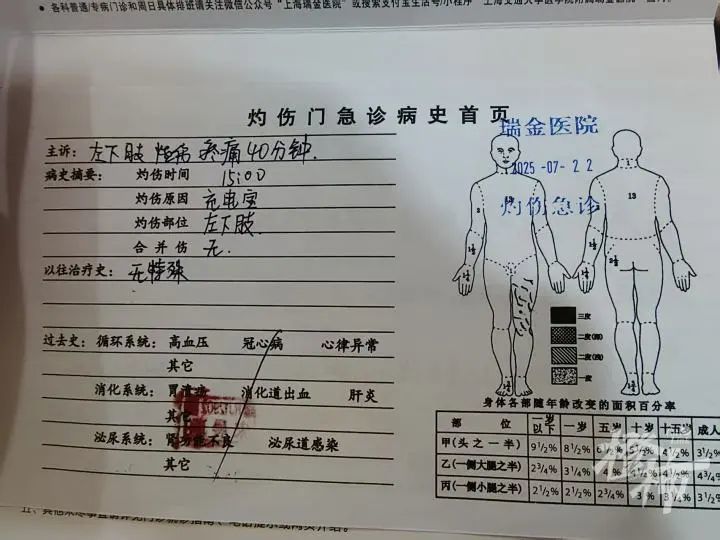 各科普通/专病门诊和周日具体排班请关注微信公众号“上海瑞金医院”或搜索支付宝生活号/小程序“上海交通大学医学院附属瑞金医院”
灼伤门急诊病史首页
瑞金医院
2025-07-22
灼伤急诊
主诉：左下肢 灼伤 疼痛 40分钟.
病史摘要： 灼伤时间 15:00
灼伤原因 充电宝
灼伤部位 左下肢.
合并伤 无.
以往治疗史：无特殊
过去史：循环系统：高血压 冠心病 心律异常
其它
消化系统：胃溃疡 消化道出血 肝炎
其它
泌尿系统：肾功能不良 泌尿道感染
其它
13
13
3
1½
1½
2½
1½
1½
1½
三度
二度(深)
二度(浅)
一度
身体各部随年龄改变的面积百分率
部 位 一岁以下 一岁 五岁 十岁 十五岁 成人
甲(头之一半) 9½ 8½ 6½ 5½ 4½ 3½
乙(一侧大腿之半) 2¾ 3¼ 4 4½ 4½ 4¾
丙(一侧小腿之半) 2½ 2½ 2¾ 3 3¼ 3½